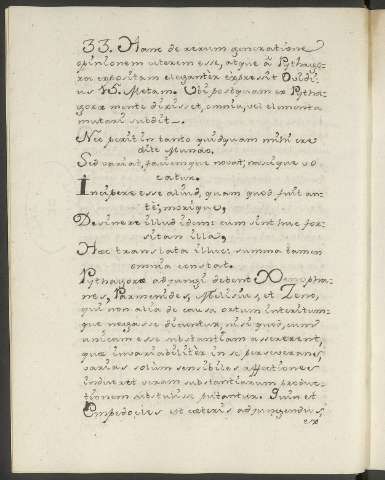 33. Hanc de rerum generatione
opinionem veterem esse, atque â Pythago-
ra expositam eleganter expressit Ovidi-
us 15. Metam. Ubi postquam ex Pytha-
goræ mente dixisset, omnia, vel elementa
mutari subdit
Nec perit in tanto quidquam mihi cre
dite Mundo.
Sed variat, faciemque novat, nascique vo
catur.
Incipere esse aliud, quam quod fuit an-
te; morique,
Desinere illud idem: cum sint huc for-
sitan illa,
Hæc translata illuc: summa tamen
omnia constat.
Pythagoræ adjungi debent Xenopha-
nes, Parmenides, Melisius, et Zeno,
qui non alia de causa ortum interitum-
que negasse dicuntur, nisi quod, cum
unicam esse substantiam assererent,
quæ invariabilitèr in se perseverans,
varias solum sensibiles affectiones
indueret veram substantiarum produc-
tionem sustulisse putantur. Quin et
Empedocles et cæteris adjungendus,
ex